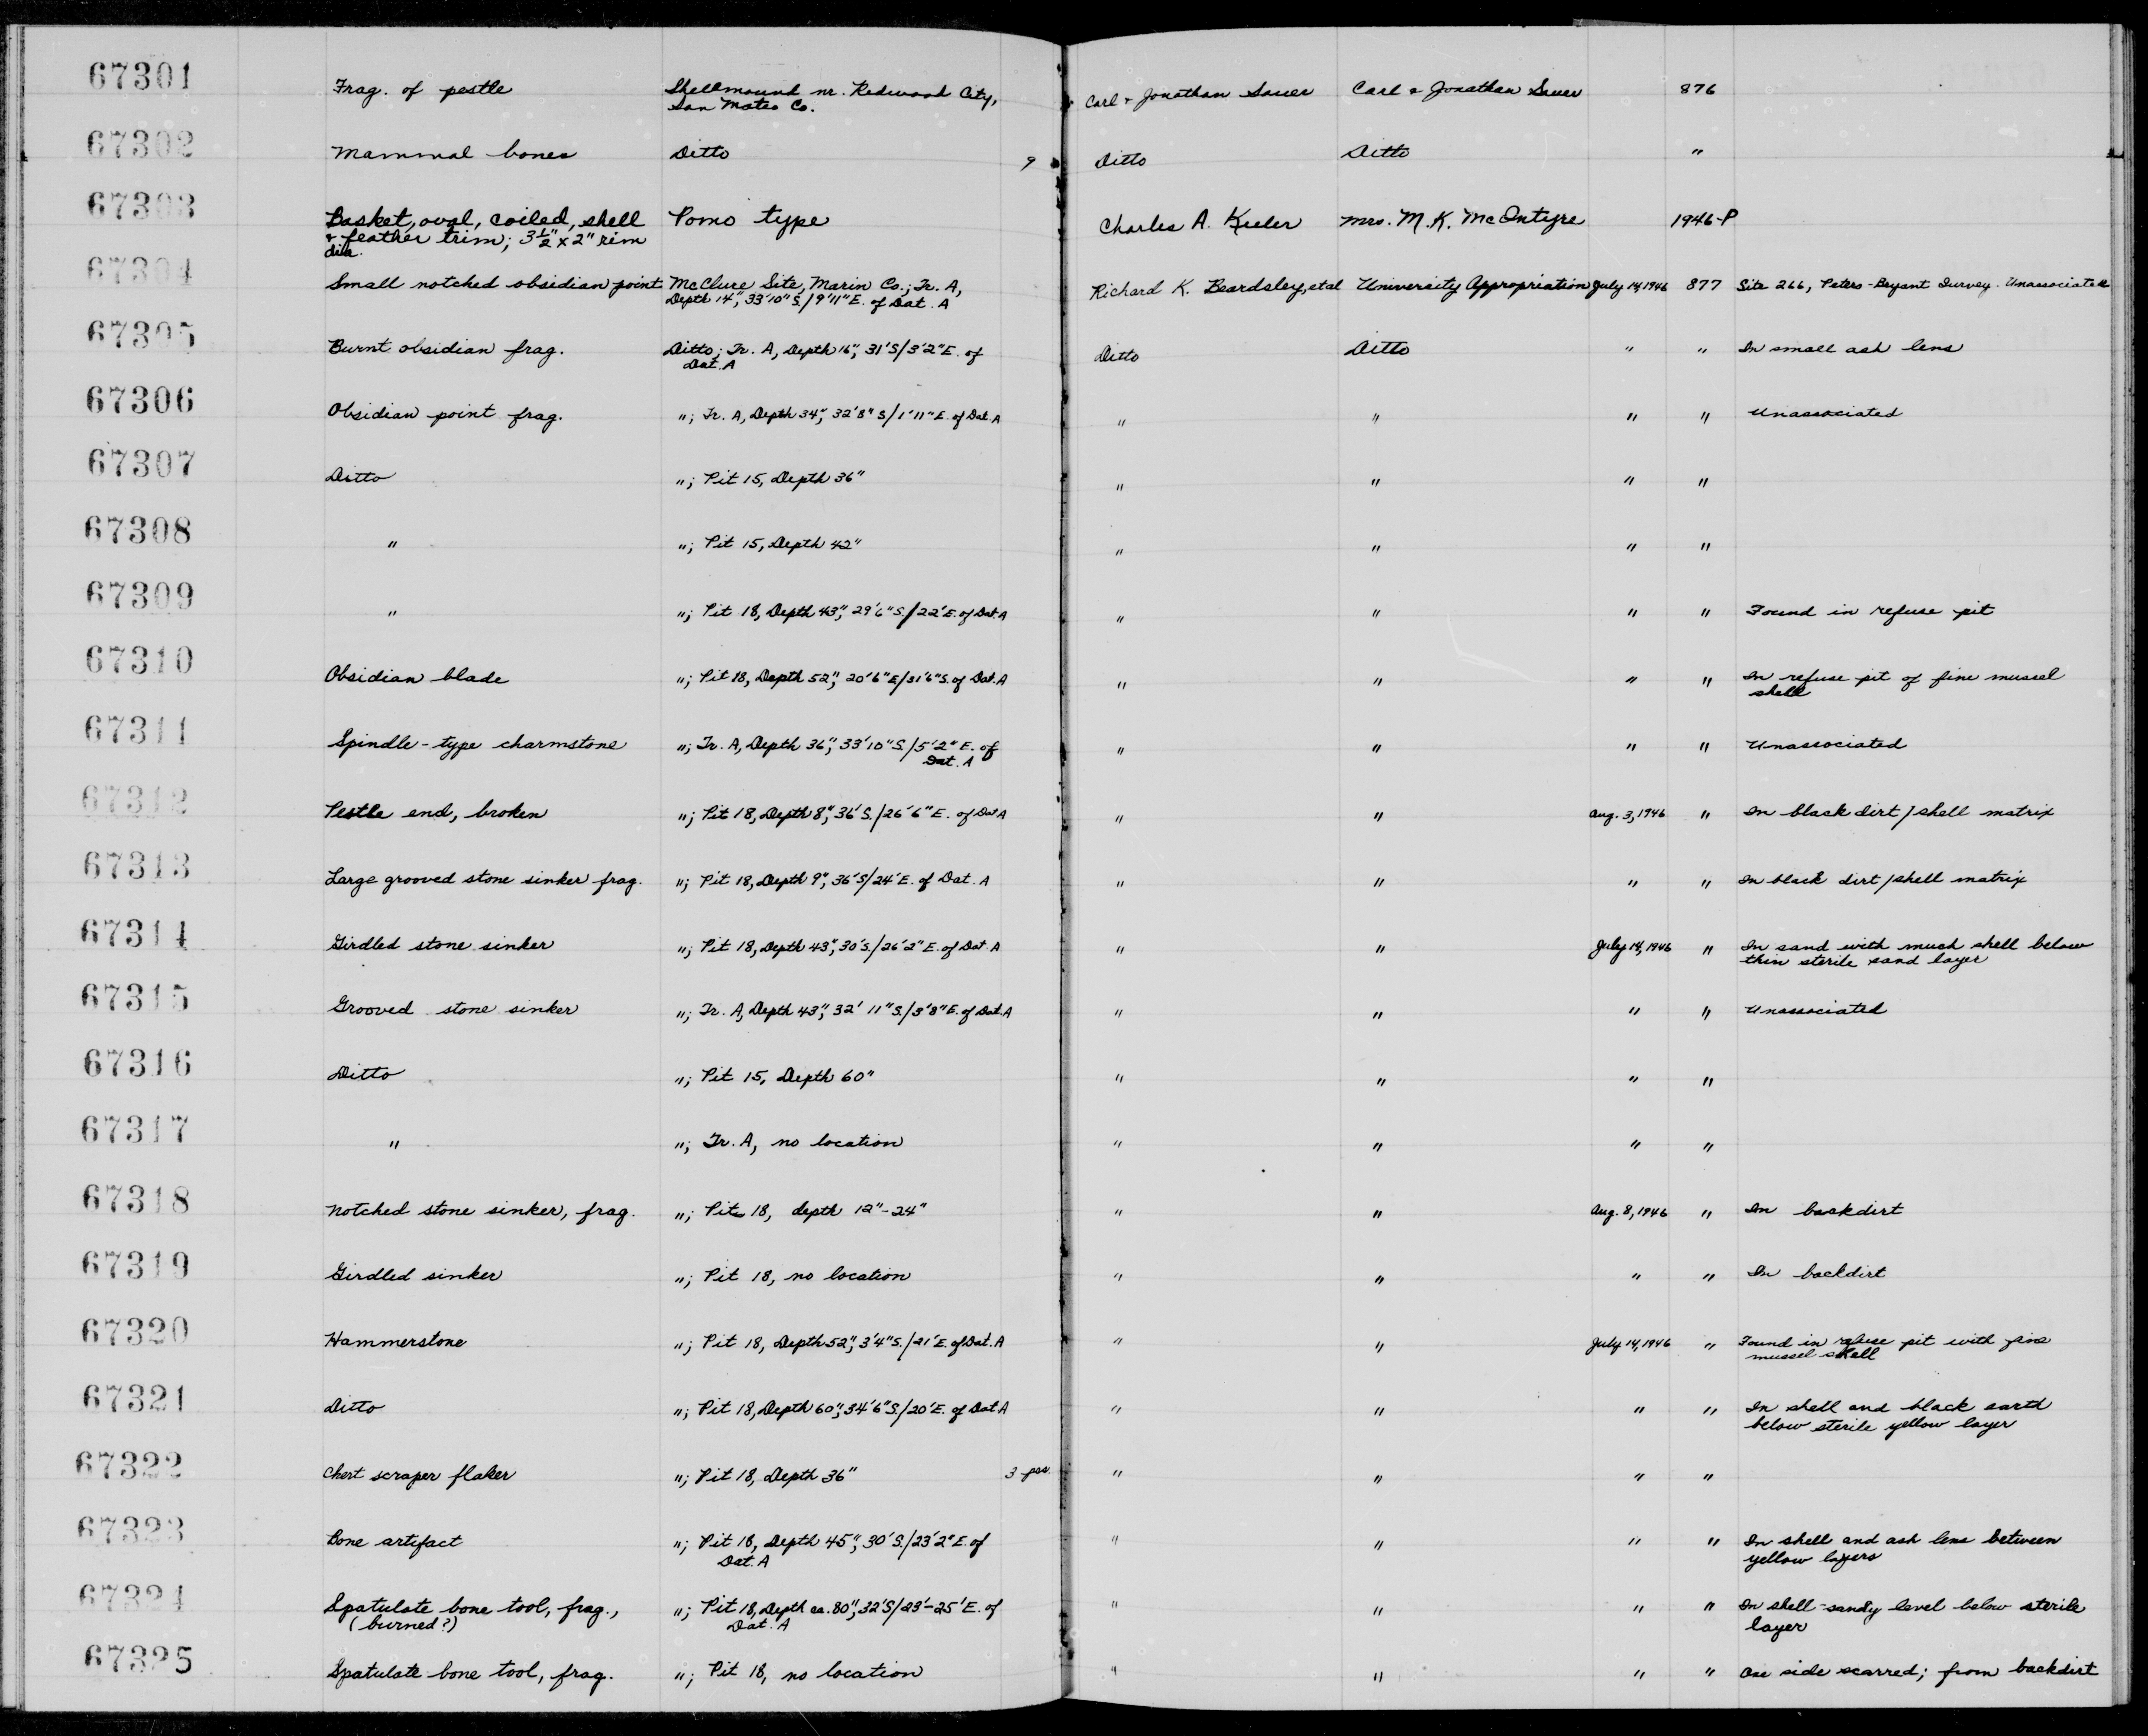 67301 Frag. of pestle Shellmound nr. Redwood City, Carl & Jonathan Sauer Carl & Jonathan Sauer 876
San Mateo Co.
67302 Mammal bones Ditto 9 Ditto Ditto "
67303 Basket, oval, coiled, shell Pomo type Charles A. Keeler Mrs. M. K. McIntyre 1946-P
& feather trim; 3½" x 2" rim
dia.
67304 Small notched obsidian point McClure Site, Marin Co.; Tr. A, Richard K. Beardsley, et al University Appropriation July 14, 1946 877 Site 266, Peters-Bryant Survey. Unassociated
Depth 14", 33'10" S./9'11" E. of Dat. A
67305 Burnt obsidian frag. Ditto; Tr. A, Depth 16", 31'S/3'2"E. of Ditto Ditto " " In small ash lens
Dat. A
67306 Obsidian point frag. "; Tr. A, Depth 34", 32'8" S/1'11" E. of Dat. A " " " " Unassociated
67307 Ditto "; Pit 15, Depth 36" " " " "
67308 " "; Pit 15, Depth 42" " " " "
67309 " "; Pit 18, Depth 43", 29'6" S./22' E. of Dat. A " " " " Found in refuse pit
67310 Obsidian blade "; Pit 18, Depth 52", 20'6" E/31'6" S. of Dat. A " " " " In refuse pit of fine mussel
shell
67311 Spindle-type charmstone "; Tr. A, Depth 36", 33'10" S./5'2" E. of " " " " Unassociated
Dat. A
67312 Pestle end, broken "; Pit 18, Depth 8", 36' S./26'6" E. of Dat A " " Aug. 3, 1946 " In black dirt/shell matrix
67313 Large grooved stone sinker frag. "; Pit 18, Depth 9", 36' S/24' E. of Dat. A " " " " In black dirt/shell matrix
67314 Girdled stone sinker "; Pit 18, Depth 43", 30' S./26'2" E. of Dat. A " " July 14, 1946 " In sand with much shell below
thin sterile sand layer
67315 Grooved stone sinker "; Tr. A, Depth 43", 32' 11" S./3'8" E. of Dat. A " " " " Unassociated
67316 Ditto "; Pit 15, Depth 60" " " " "
67317 " "; Tr. A, no location " " " "
67318 Notched stone sinker, frag. "; Pit 18, depth 12"-24" " " Aug. 8, 1946 " In backdirt
67319 Girdled sinker "; Pit 18, no location " " " " In backdirt
67320 Hammerstone "; Pit 18, Depth 52", 3'4" S./21' E. of Dat. A " " July 14, 1946 " Found in refuse pit with fine
mussel shell
67321 Ditto "; Pit 18, Depth 60", 34'6" S./20' E. of Dat A " " " " In shell and black earth
below sterile yellow layer
67322 Chert scraper flaker "; Pit 18, Depth 36" 3 pcs. " " " "
67323 Bone artifact "; Pit 18, Depth 45", 30' S./23'2" E. of " " " " In shell and ash lens between
Dat. A yellow layers
67324 Spatulate bone tool, frag., "; Pit 18, Depth ca. 80", 32' S/23'-25' E. of " " " " In shell-sandy level below sterile
(burned?) Dat. A layer
67325 Spatulate bone tool, frag. "; Pit 18, no location " " " " One side scarred; from backdirt